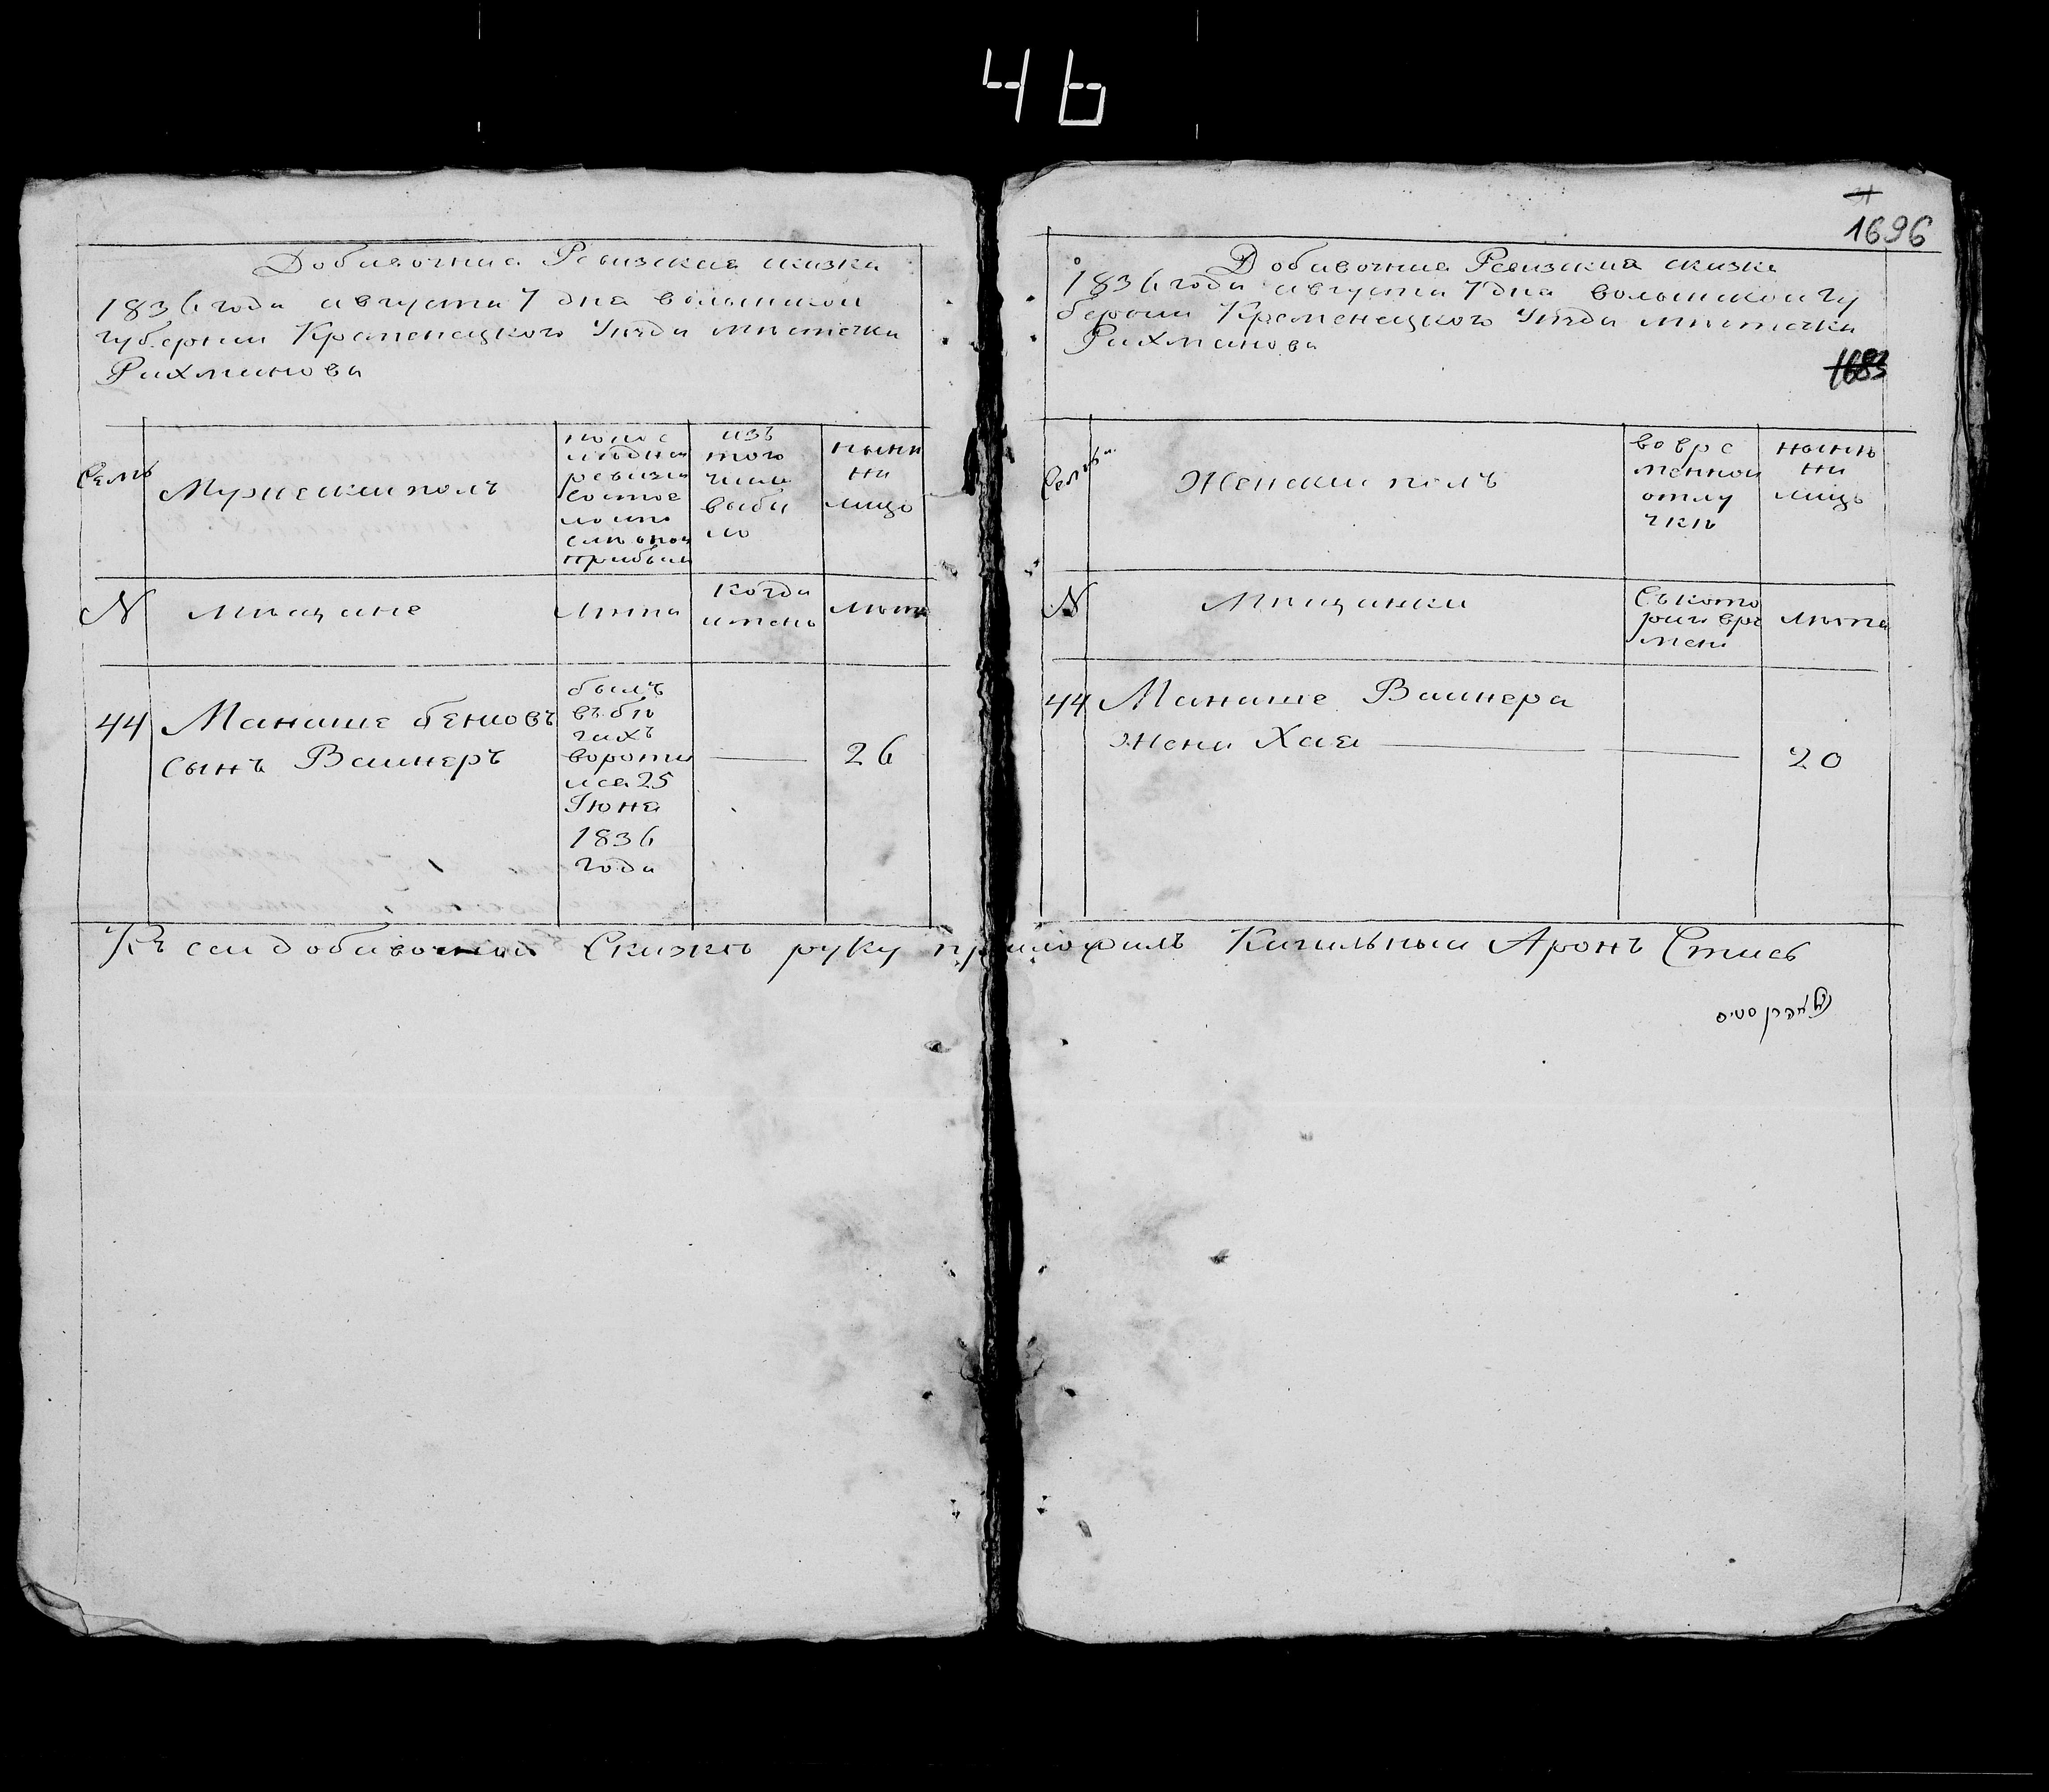 46
Добавочна Ревизская сказка
1836 года августа 7 дна волынской
губернии Кременецкого Уезда мѣстечка
Рахманова
Семъ
Мужескии полъ
по пос
ледней
ревизи
состоя
ло и по
слѣ оной
прибыли
изъ
того
числа
выбы
ло
нынѣ
на
лицо
N
мѣщане
Лѣта
когда
имено
Лѣта
44
Манаше беніовъ
сынъ Ваинеръ
былъ
въ бѣ
гахъ
вороти
лса 25
Іюна
1836
года
26
1696
Добавочна Ревизкиа сказка
1836 года августа 7 дна волынской гу
бернии Кременецкого Уѣзда мѣстечка
Рахманова
1683
Семъи
Женскии полъ
во вре
менной
отлу
чкѣ
нынѣ
на
лицъ
N
Мѣщанки
Съ кото
рого вре
мени
Лѣта
44
Манаше Ваинера
жена Хаа
20
Къ сеи добавочной Сказкѣ руку приложилъ Кагальныи Аронъ Стись
אהרן סטיס